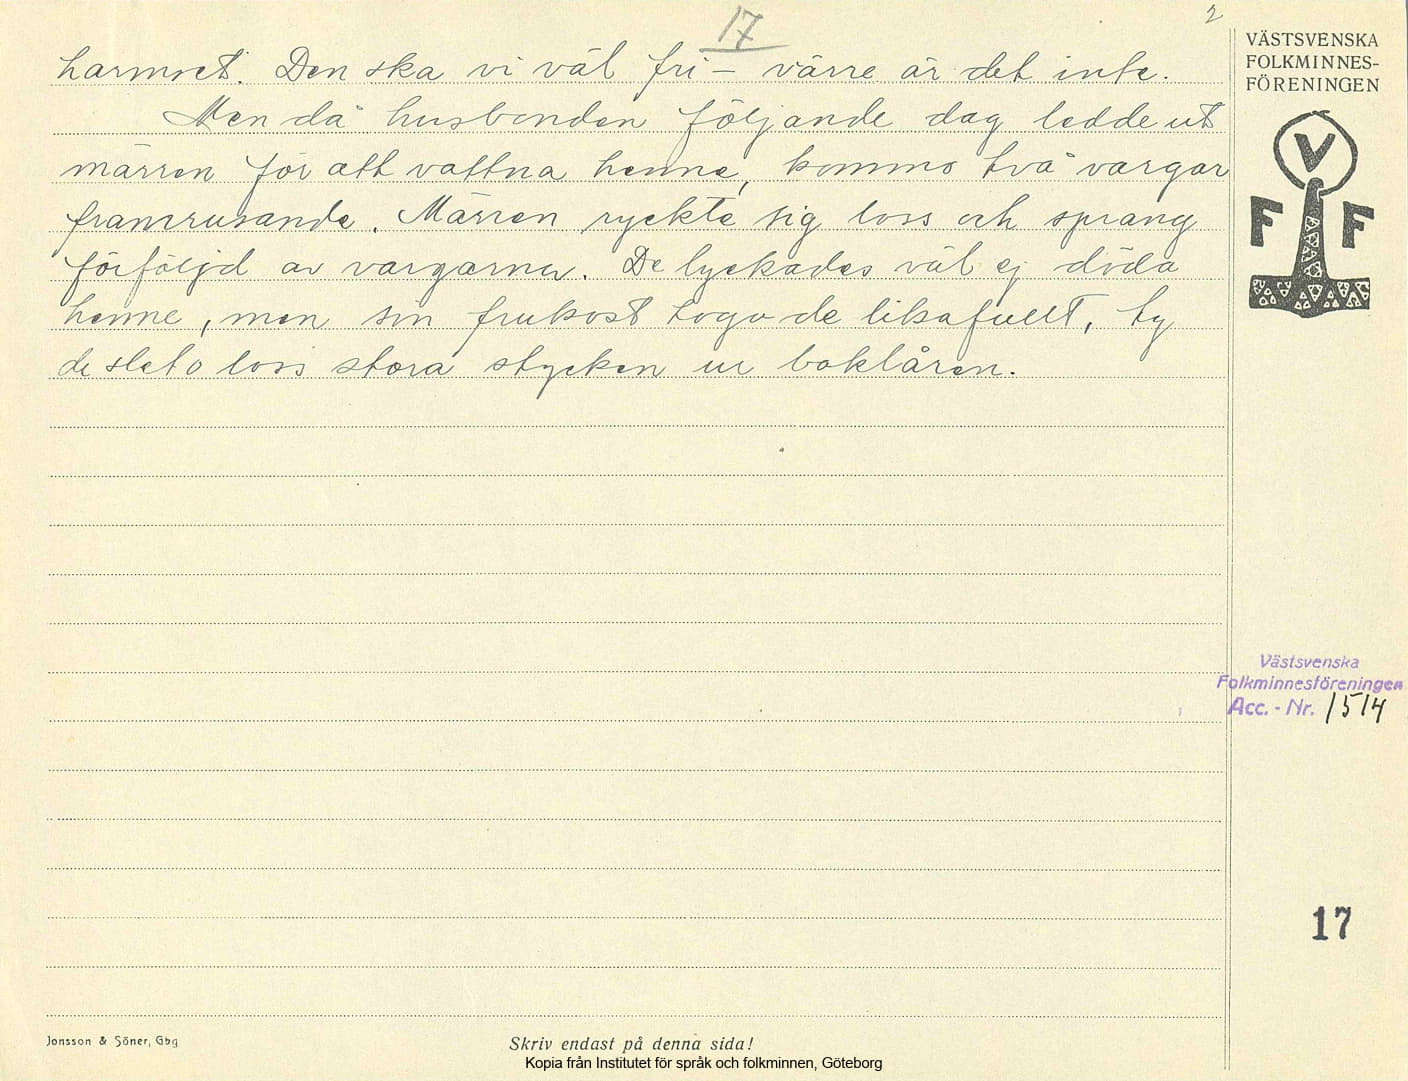 17
2
harmset. Den ska vi väl fri — värre är det inte.
Men då husbonden följande dag ledde ut
märren för att vattna henne, kommo två vargar
framrusande. Märren ryckte sig loss och sprang
förföljd av vargarna. De lyckades väl ej döda
henne, men sin frukost togo de likafullt, ty
de sleto loss stora stycken ur boklåren.
VÄSTSVENSKA
FOLKMINNES-
FÖRENINGEN
V
F F
Västsvenska
Folkminnesföreningen
Acc. - Nr. 1514
17
Jonsson & Söner, Gbg
Skriv endast på denna sida!
Kopia från Institutet för språk och folkminnen, Göteborg